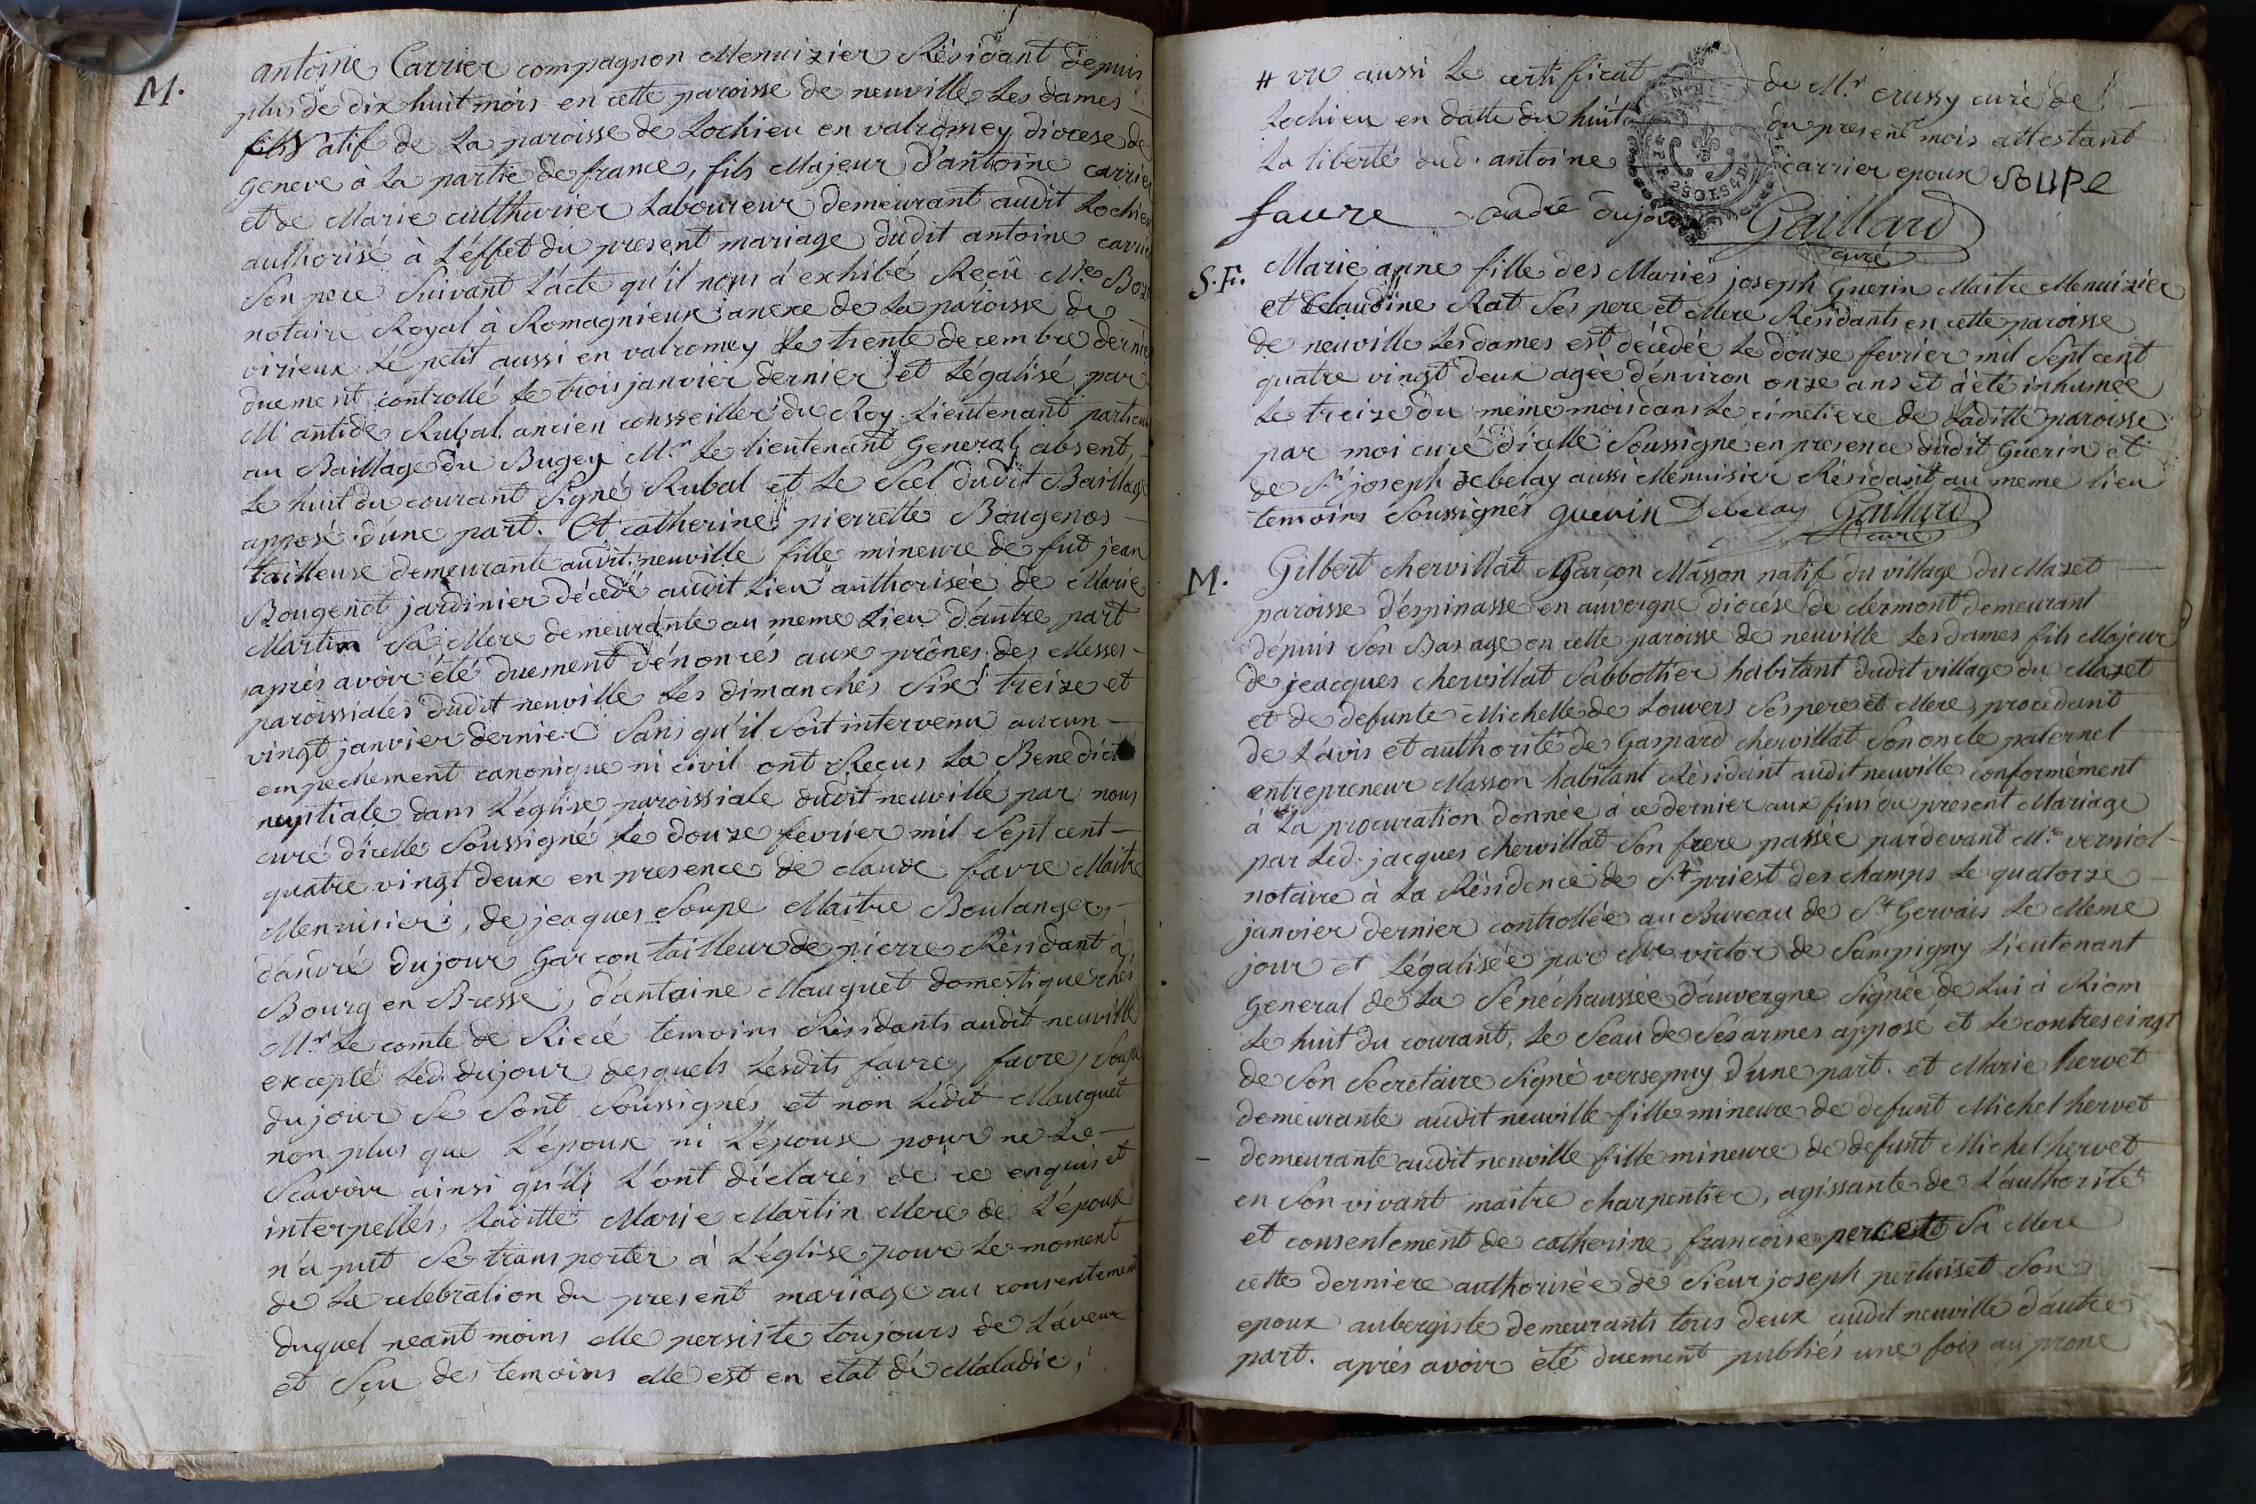 M.
antoine Carrier compagnon Menuizier Résidant depuis
plus de dix huit mois en cette paroisse de neuville Les dames
natif de La paroisse de Lochieu en valromey diocese de
Geneve à La partie de france, fils Majeur d'antoine carrier
et de Marie cutthurier Laboureur demeurant audit Lochieu
authorisé à L'éffet du present mariage dudit antoine carrier
Son pere Suivant L'acte qu'il nous à exhibé Reçû Me
notaire Royal à Romagnieux anexe de La paroisse de
virieux Le petit aussi en valromey Le trente decembre dernier
duement controllé Le trois janvier dernier et Légalisé par
M antide Rubal ancien consseiller du Roy Lieutenant particu
au Baillage du Bugey Mr Le lieutenant General absent,
Le huit du courant Signé Rubal et Le Scel dudit Baillage
apposé d'une part. Et catherine pierrette Bougenos
tailleuse demeurante audit neuville fille mineure de fut jean
Bougenot jardinier décédé audit Lieu authorisée de Marie
Martin Sa Mere demeurante au meme Lieu d'autre part
après avoir été duement dénoncés aux prônes des Messes
paroissiales dudit neuville Les dimanches Six treize et
vingt janvier dernier Sans qu'il Soit intervenu aucun
empechement canonique ni civil ont Reçus La Benedict
nuptiale dans L'église paroissiale dudit neuville par nous
curé d'icelle Soussigné Le douze fevrier mil Sept cent
quatre vingt deux en presence de claude favre Maitre
Menuisier, de jeaques Soupe Maitre Boulanger,
d'andré dujour Garçon tailleur de pierre Résidant à
Bourg en Bresse, d'antoine Mauguet domestique chés
Mr Le comte de Riccé temoins Résidants audit neuville
excepté Led. dujour desquels Lesdits favre, favre, Soupe
dujour Se Sont Soussignés et non Ledit Mauguet
non plus que L'époux ni L'épouse pour ne Le
Scavoir ainsi qu'ils L'ont déclarés de ce enquis et
interpellés, Laditte Marie Martin Mere de L'épouse
n'a put Se transporter à L'église pour Le moment
de La celebration du present mariage au consentement
duquel neant moins elle persiste toujours de L'aveux
et Sçu des temoins elle est en etat de Maladie,
# vu aussi Le certificat de Mr crussy curé de
Lochieu en datte du huit du present mois attestant
La liberté dud. antoine carrier epoux SOUPE
faure andré dujour Gaillard
curé
S.F.
Marie anne fille des Mariés joseph Guerin Maitre Menuizier
et Claudine Rat Ses pere et Mere Résidants en cette paroisse
de neuville Les dames est décédée Le douze fevrier mil Sept cent
quatre vingt deux agée d'environ onze ans et à été inhumée
Le treize du meme mois dans Le cimetiere de Laditte paroisse
par moi curé d'icelle Soussigné en presence dudit Guerin et
de Sr joseph debelay aussi Menuisier Résidant au meme lieu
temoins Soussignés guerin Debelay Gaillard
curé
M.
Gilbert chervillat Garçon Masson natif du village du Mazet
paroisse d'espinasse en auvergne diocése de clermont demeurant
dépuis Son Bas age en cette paroisse de neuville Les dames fils Majeur
de jeacques chervillat Sabbottier habitant dudit village du Mazet
et de defunte Michelle de Louvers Ses pere et Mere, procédant
de L'avis et authorité de Gaspard chervillat Son oncle paternel
entrepreneur Masson habitant Résidant audit neuville conformément
à La procuration donnée a ce dernier aux fins du present Mariage
par Led. jacques chervillat Son frere passée pardevant Me verniol
notaire à La Résidence de St priest des champs Le quatorze
janvier dernier controllée au Bureau de St Gervais Le Meme
jour et Légalisée par Mre victor de Sampigny Lieutenant
General de La Sénéchaussée d'auvergne Signée de Lui à Riom
Le huit du courant, Le Seau de Ses armes apposé et Le contreseingt
de Son Secretaire Signé versepuy d'une part. et Marie hervet
demeurante audit neuville fille mineure de defunt Michel hervet
demeurante audit neuville fille mineure de defunt Michel hervet
en Son vivant maitre charpentier, agissante de L'authorité
et consentement de catherine francoise Sa Mere
cette derniere authorisée de Sieur joseph pertuiset Son
epoux aubergiste demeurants tous deux audit neuville d'autre
part. après avoir été duement publiés une fois au prone